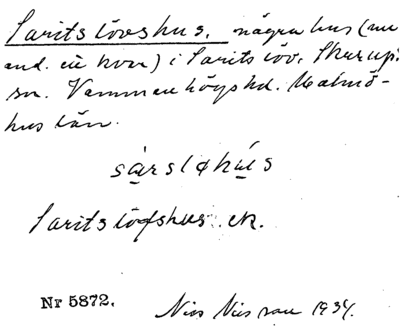 Saritslövshus. några hus (nu
end. ett kvar) i Saritslöv. Skurups
sn. Vemmenhögs hd. Malmö-
hus län.
sarsløhús
Saritslöfshus. ek.
Nr 5872. Nils Nilsson 1934.